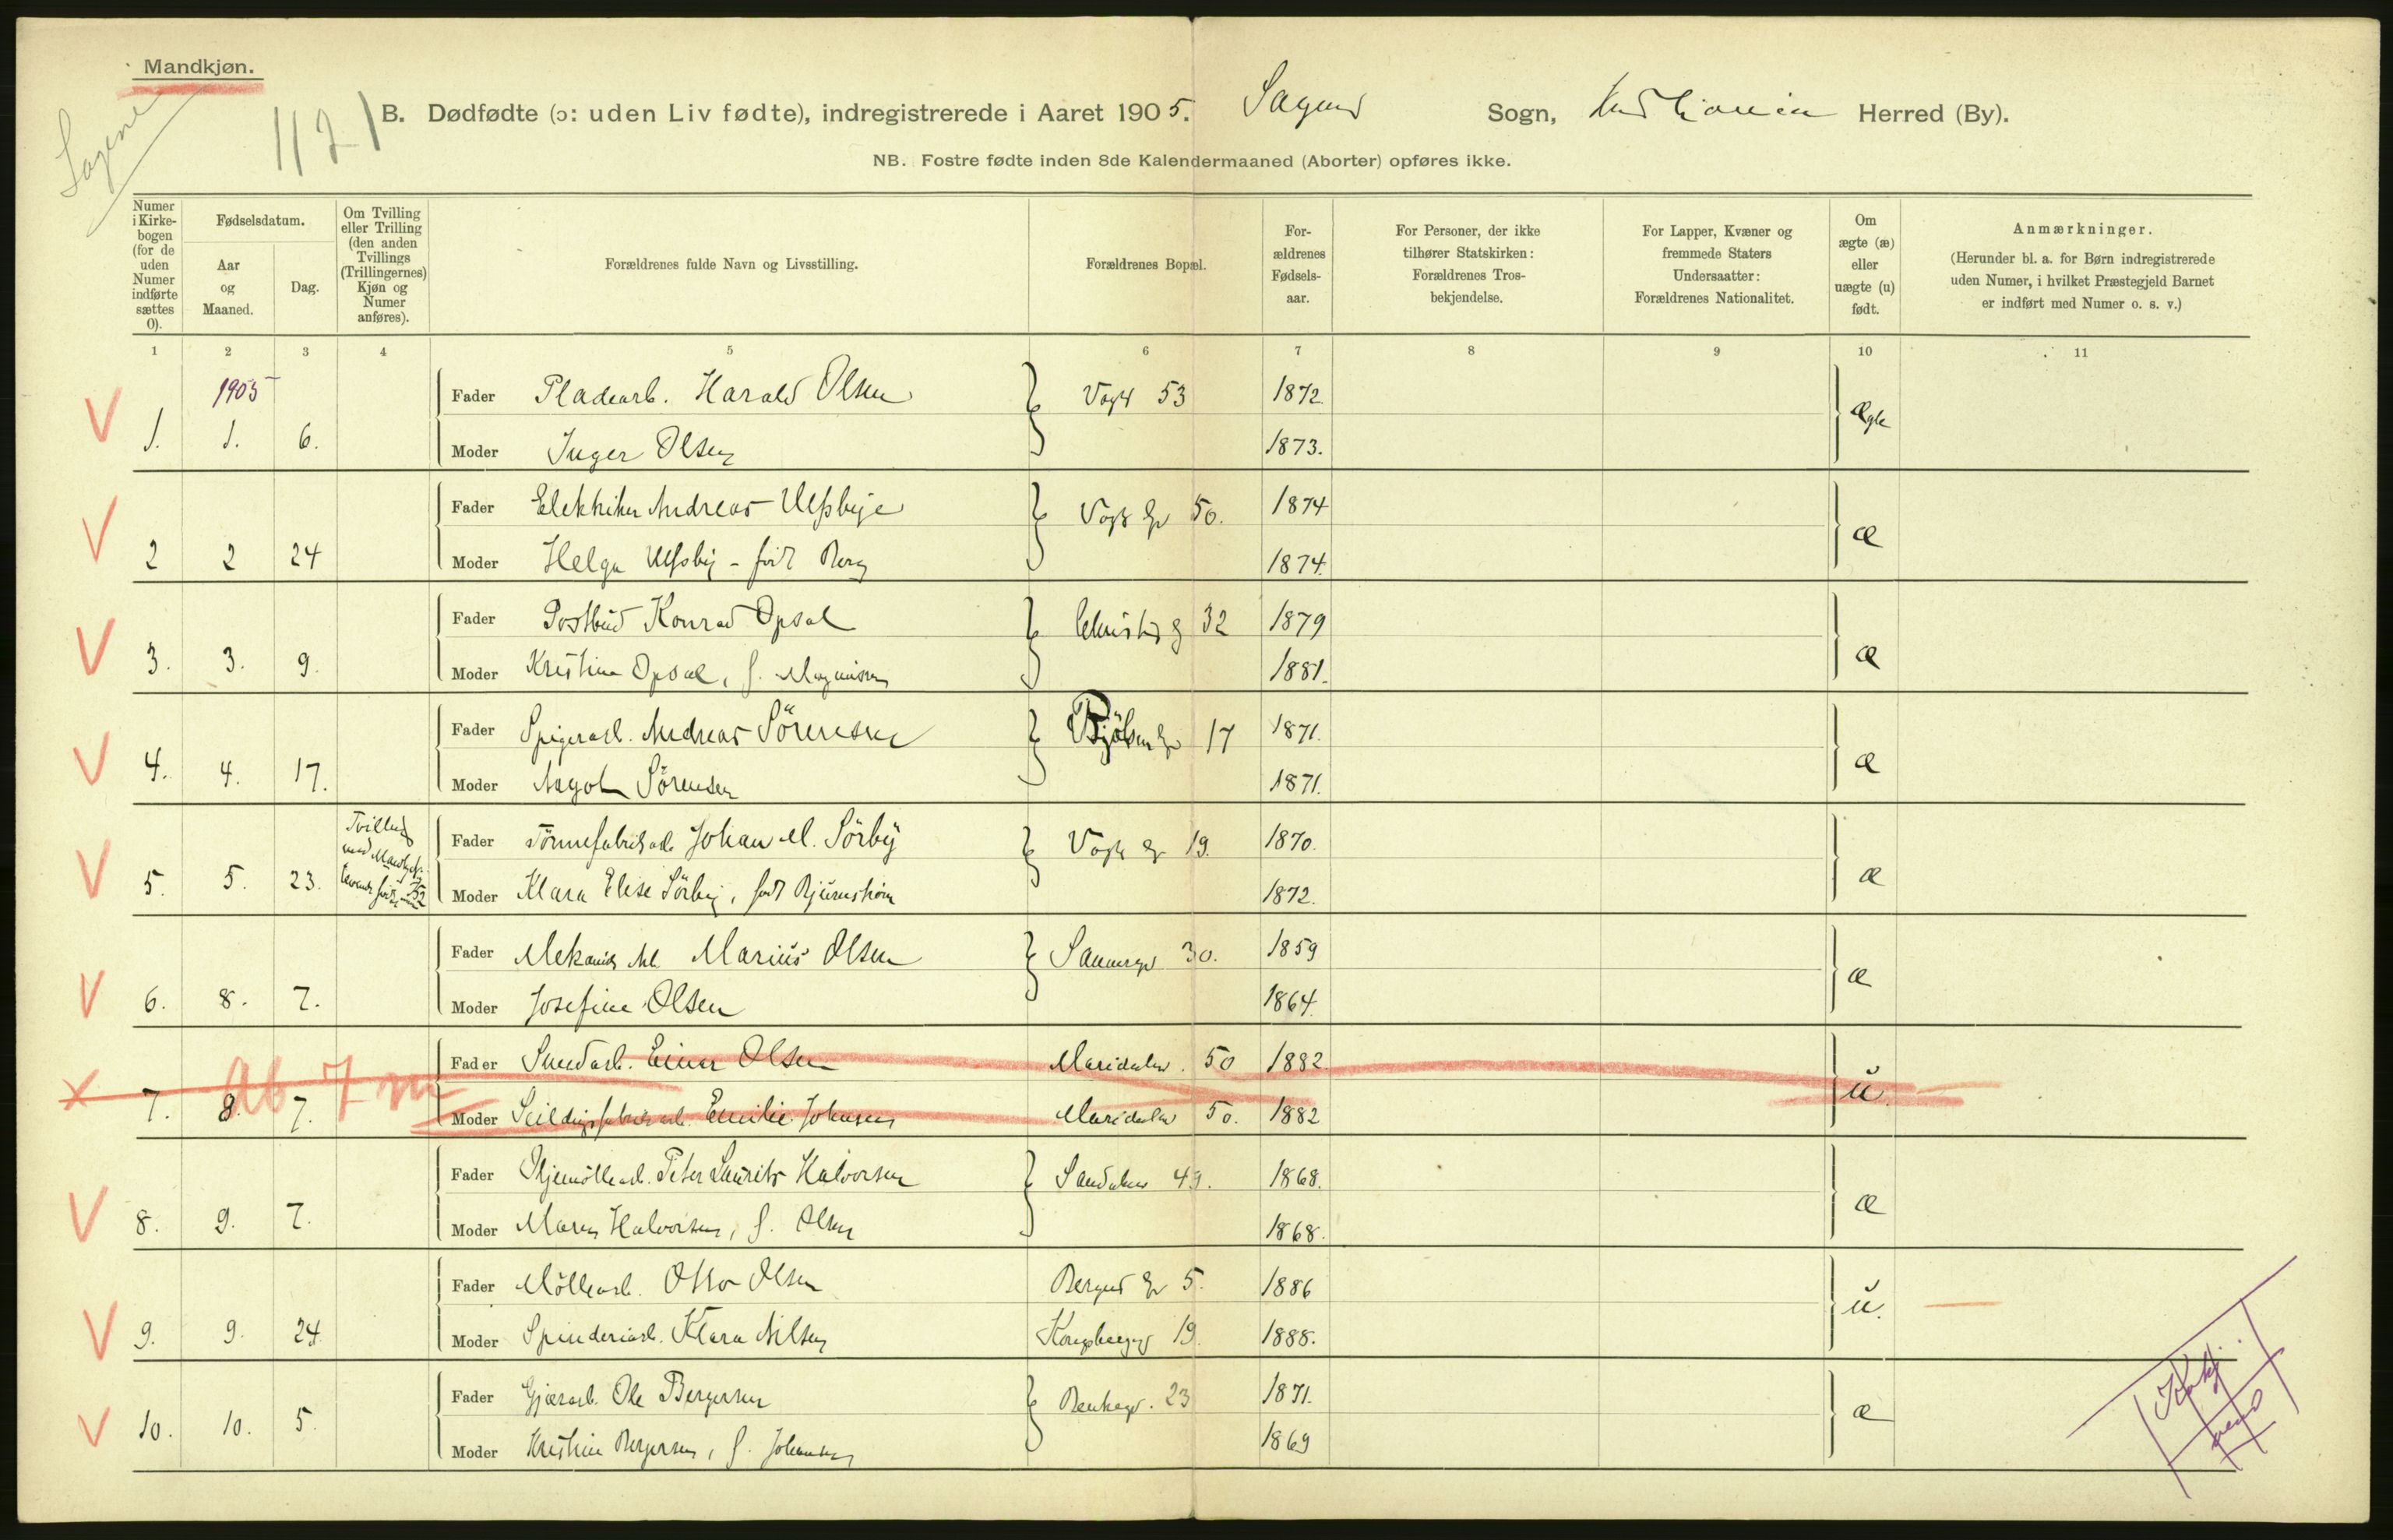 Mandkjøn.
Sagene
1121
B. Dødfødte (ɔ: uden Liv fødte), indregistrerede i Aaret 1905. Sagene Sogn, Kristiania Herred (By).
NB. Fostre fødte inden 8de Kalendermaaned (Aborter) opføres ikke.
Numer i Kirke-bogen (for de uden Numer indførte sættes 0).
Fødselsdatum.
Aar og Maaned.
Dag.
Om Tvilling eller Trilling (den anden Tvillings (Trillingernes) Kjøn og Numer anføres).
Forældrenes fulde Navn og Livsstilling.
Forældrenes Bopæl.
For-ældrenes Fødsels-aar.
For Personer, der ikke tilhører Statskirken: Forældrenes Tros-bekjendelse.
For Lapper, Kvæner og fremmede Staters Undersaatter: Forældrenes Nationalitet.
Om ægte (æ) eller uægte (u) født.
Anmærkninger.
(Herunder bl. a. for Børn indregistrerede uden Numer, i hvilket Præstegjeld Barnet er indført med Numer o. s. v.)
1 2 3 4 5 6 7 8 9 10 11
1905
Fader Pladearb. Harald Olsen Vogts 53 1872.
1. 1. 6. Moder Inger Olsen 1873. Ægte
Fader Elektriker Andreas Ulfsbye Vogts gd 50. 1874
2 2 24 Moder Helga Ulfsby - født Berg 1874. æ
Fader Postbud Konrad Opsal Christies g 32 1879
3. 3. 9. Moder Kristine Opsal, f. Magnussen 1881. æ
Fader Spigerarb. Andreas Sörensen Bjölsen gd 17 1871.
4. 4. 17. Moder Sörensen 1871. æ
Tvilling med Mandkj. levende født 752
Fader Tönnefabrikarb Johan M. Sörby Vogts g 19. 1870.
5. 5. 23. Moder Klara Elise Sörby, født Bjurnström 1872. æ
Fader Mekanisk Arb. Marius Olsen 30. 1859
6. 8. 7. Moder Josefine Olsen 1864. æ
Fader Smedarb. Einar Olsen Maridalsv. 50 1882.
X Ab 7 m
7. 8. 7. Moder Seildugsfabrikarb. Emilie Johnsen Maridalsv 50. 1882 u.
Fader Oljemöllearb. Peter Laurits Halvorsen Sandakerv 49. 1868.
8. 9. 7. Moder Maren Halvorsen, f. Olsen 1868. æ
Fader Möllearb. Otto Olsen Bergens gd 5. 1886
9. 9. 24 Moder Spinderiarb. Klara Nilsen Kongsberggd 19. 1888. u.
Fader Gjærarb. Ole Bergersen 23 1871.
10. 10. 5. Moder Kristine Bergersen, f. Johansen 1869 æ